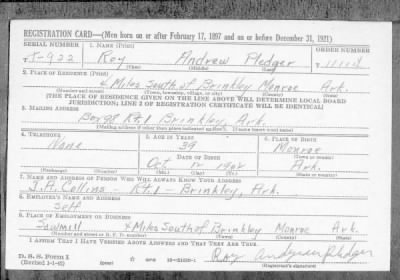 REGISTRATION CARD—(Men born on or after February 17, 1897 and on or before December 31, 1921)
SERIAL NUMBER 1. NAME (Print) ORDER NUMBER
T-922 Roy Andrew Pledger 11114
(First) (Middle) (Last)
2. PLACE OF RESIDENCE (Print)
4 Miles South of Brinkley Monroe Ark.
(Number and street) (Town, township, village, or city) (County) (State)
[THE PLACE OF RESIDENCE GIVEN ON THE LINE ABOVE WILL DETERMINE LOCAL BOARD
JURISDICTION; LINE 2 OF REGISTRATION CERTIFICATE WILL BE IDENTICAL]
3. MAILING ADDRESS
Rt. 1 Brinkley, Ark.
[Mailing address if other than place indicated on line 2. If same insert word same]
4. TELEPHONE 5. AGE IN YEARS 6. PLACE OF BIRTH
None 39 Monroe
DATE OF BIRTH (Town or county)
Oct 12 1902 Ark.
(Mo.) (Day) (Yr.) (State or country)
7. NAME AND ADDRESS OF PERSON WHO WILL ALWAYS KNOW YOUR ADDRESS
J. A. Collins - Rt. 1 - Brinkley, Ark.
8. EMPLOYER'S NAME AND ADDRESS
Self
9. PLACE OF EMPLOYMENT OR BUSINESS
Sawmill 4 Miles South of Brinkley Monroe Ark.
(Number and street or R. F. D. number) (Town) (County) (State)
I AFFIRM THAT I HAVE VERIFIED ABOVE ANSWERS AND THAT THEY ARE TRUE.
D. S. S. Form 1
(Revised 1-1-42) (over) Roy Pledger